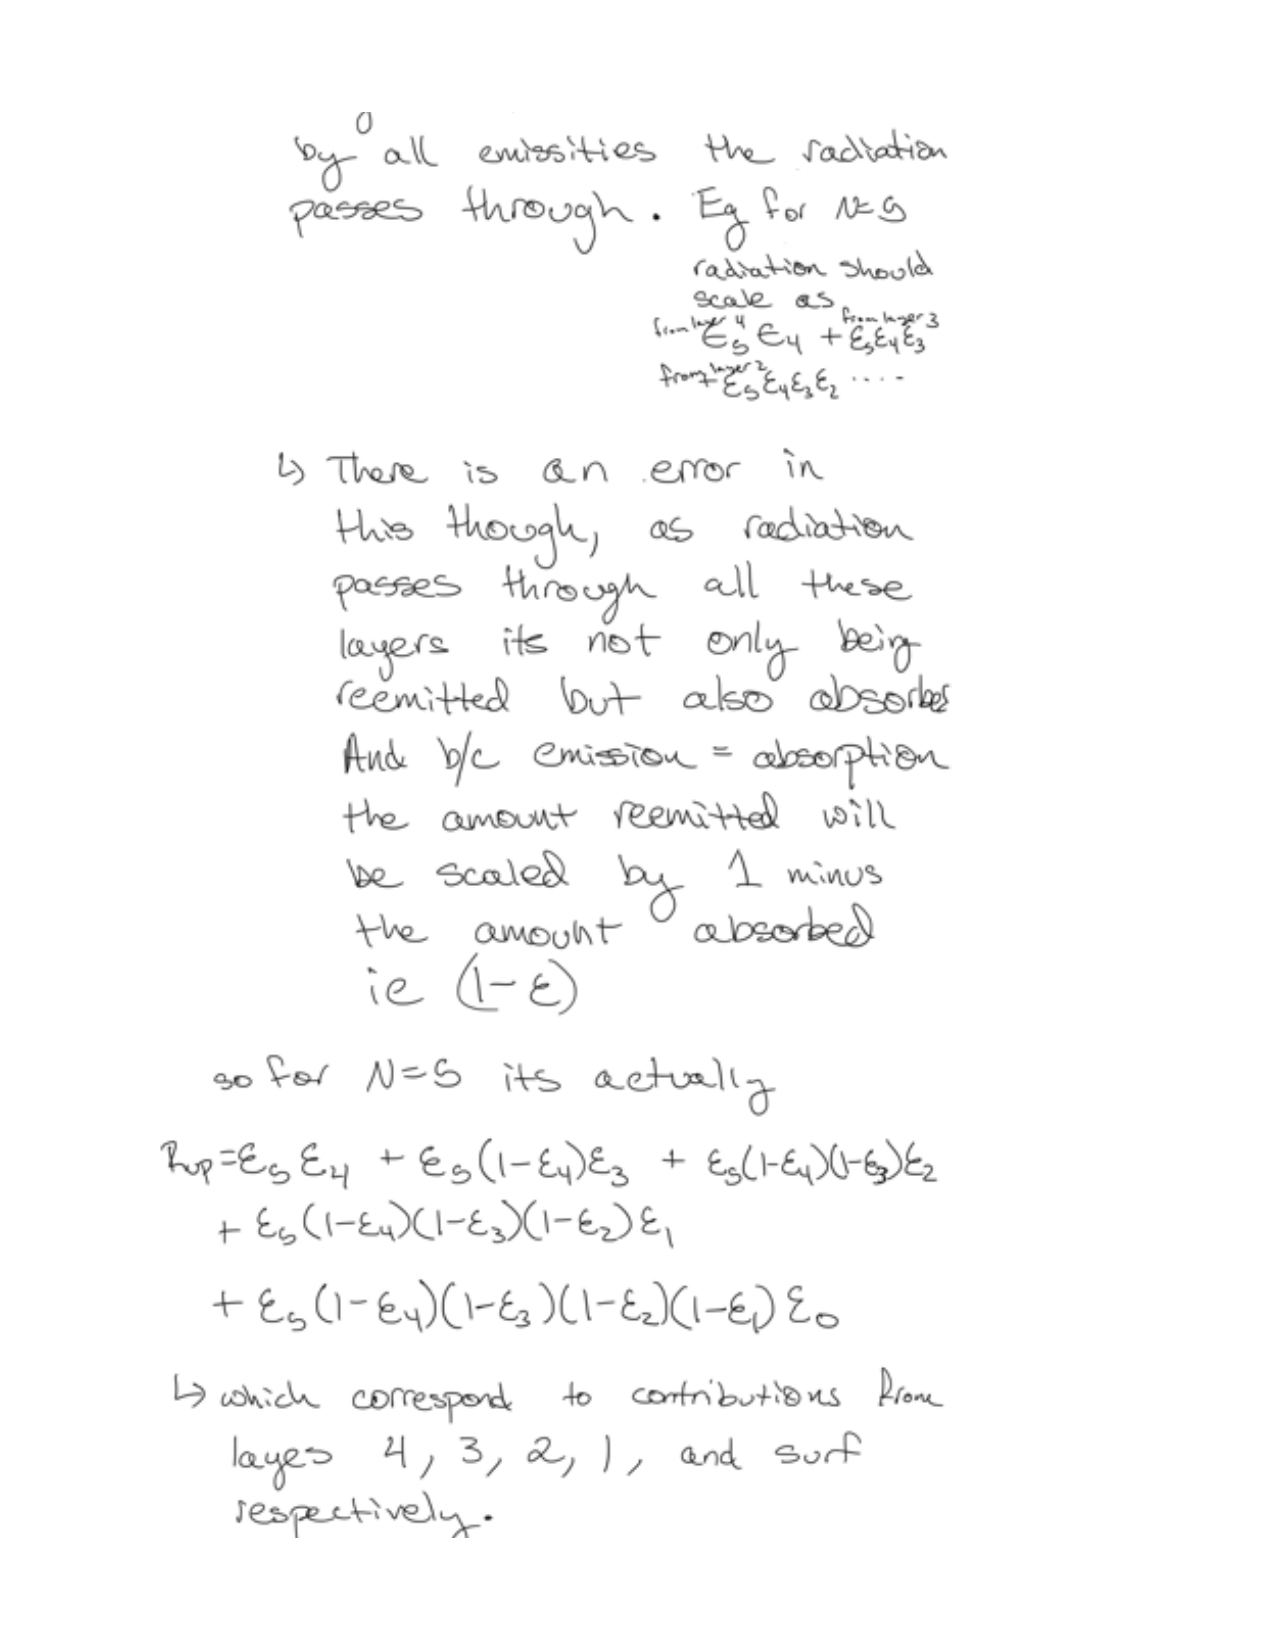 by all emissities the radiation
passes through. Eg for N=5
radiation should
scale as
from layer 4 from layer 3
ε₅ ε₄ + ε₅ε₄ε₃
from layer 2
+ ε₅ε₄ε₃ε₂ ....
↳ There is an error in
this though, as radiation
passes through all these
layers its not only being
reemitted but also absorbed
And b/c emission = absorption
the amount reemitted will
be scaled by 1 minus
the amount absorbed
ie (1-ε)
so for N=5 its actually
Rup=ε₅ε₄ + ε₅(1-ε₄)ε₃ + ε₅(1-ε₄)(1-ε₃)ε₂
+ ε₅(1-ε₄)(1-ε₃)(1-ε₂)ε₁
+ ε₅(1-ε₄)(1-ε₃)(1-ε₂)(1-ε₁)ε₀
↳ which correspond to contributions from
layes 4, 3, 2, 1, and surf
respectively.